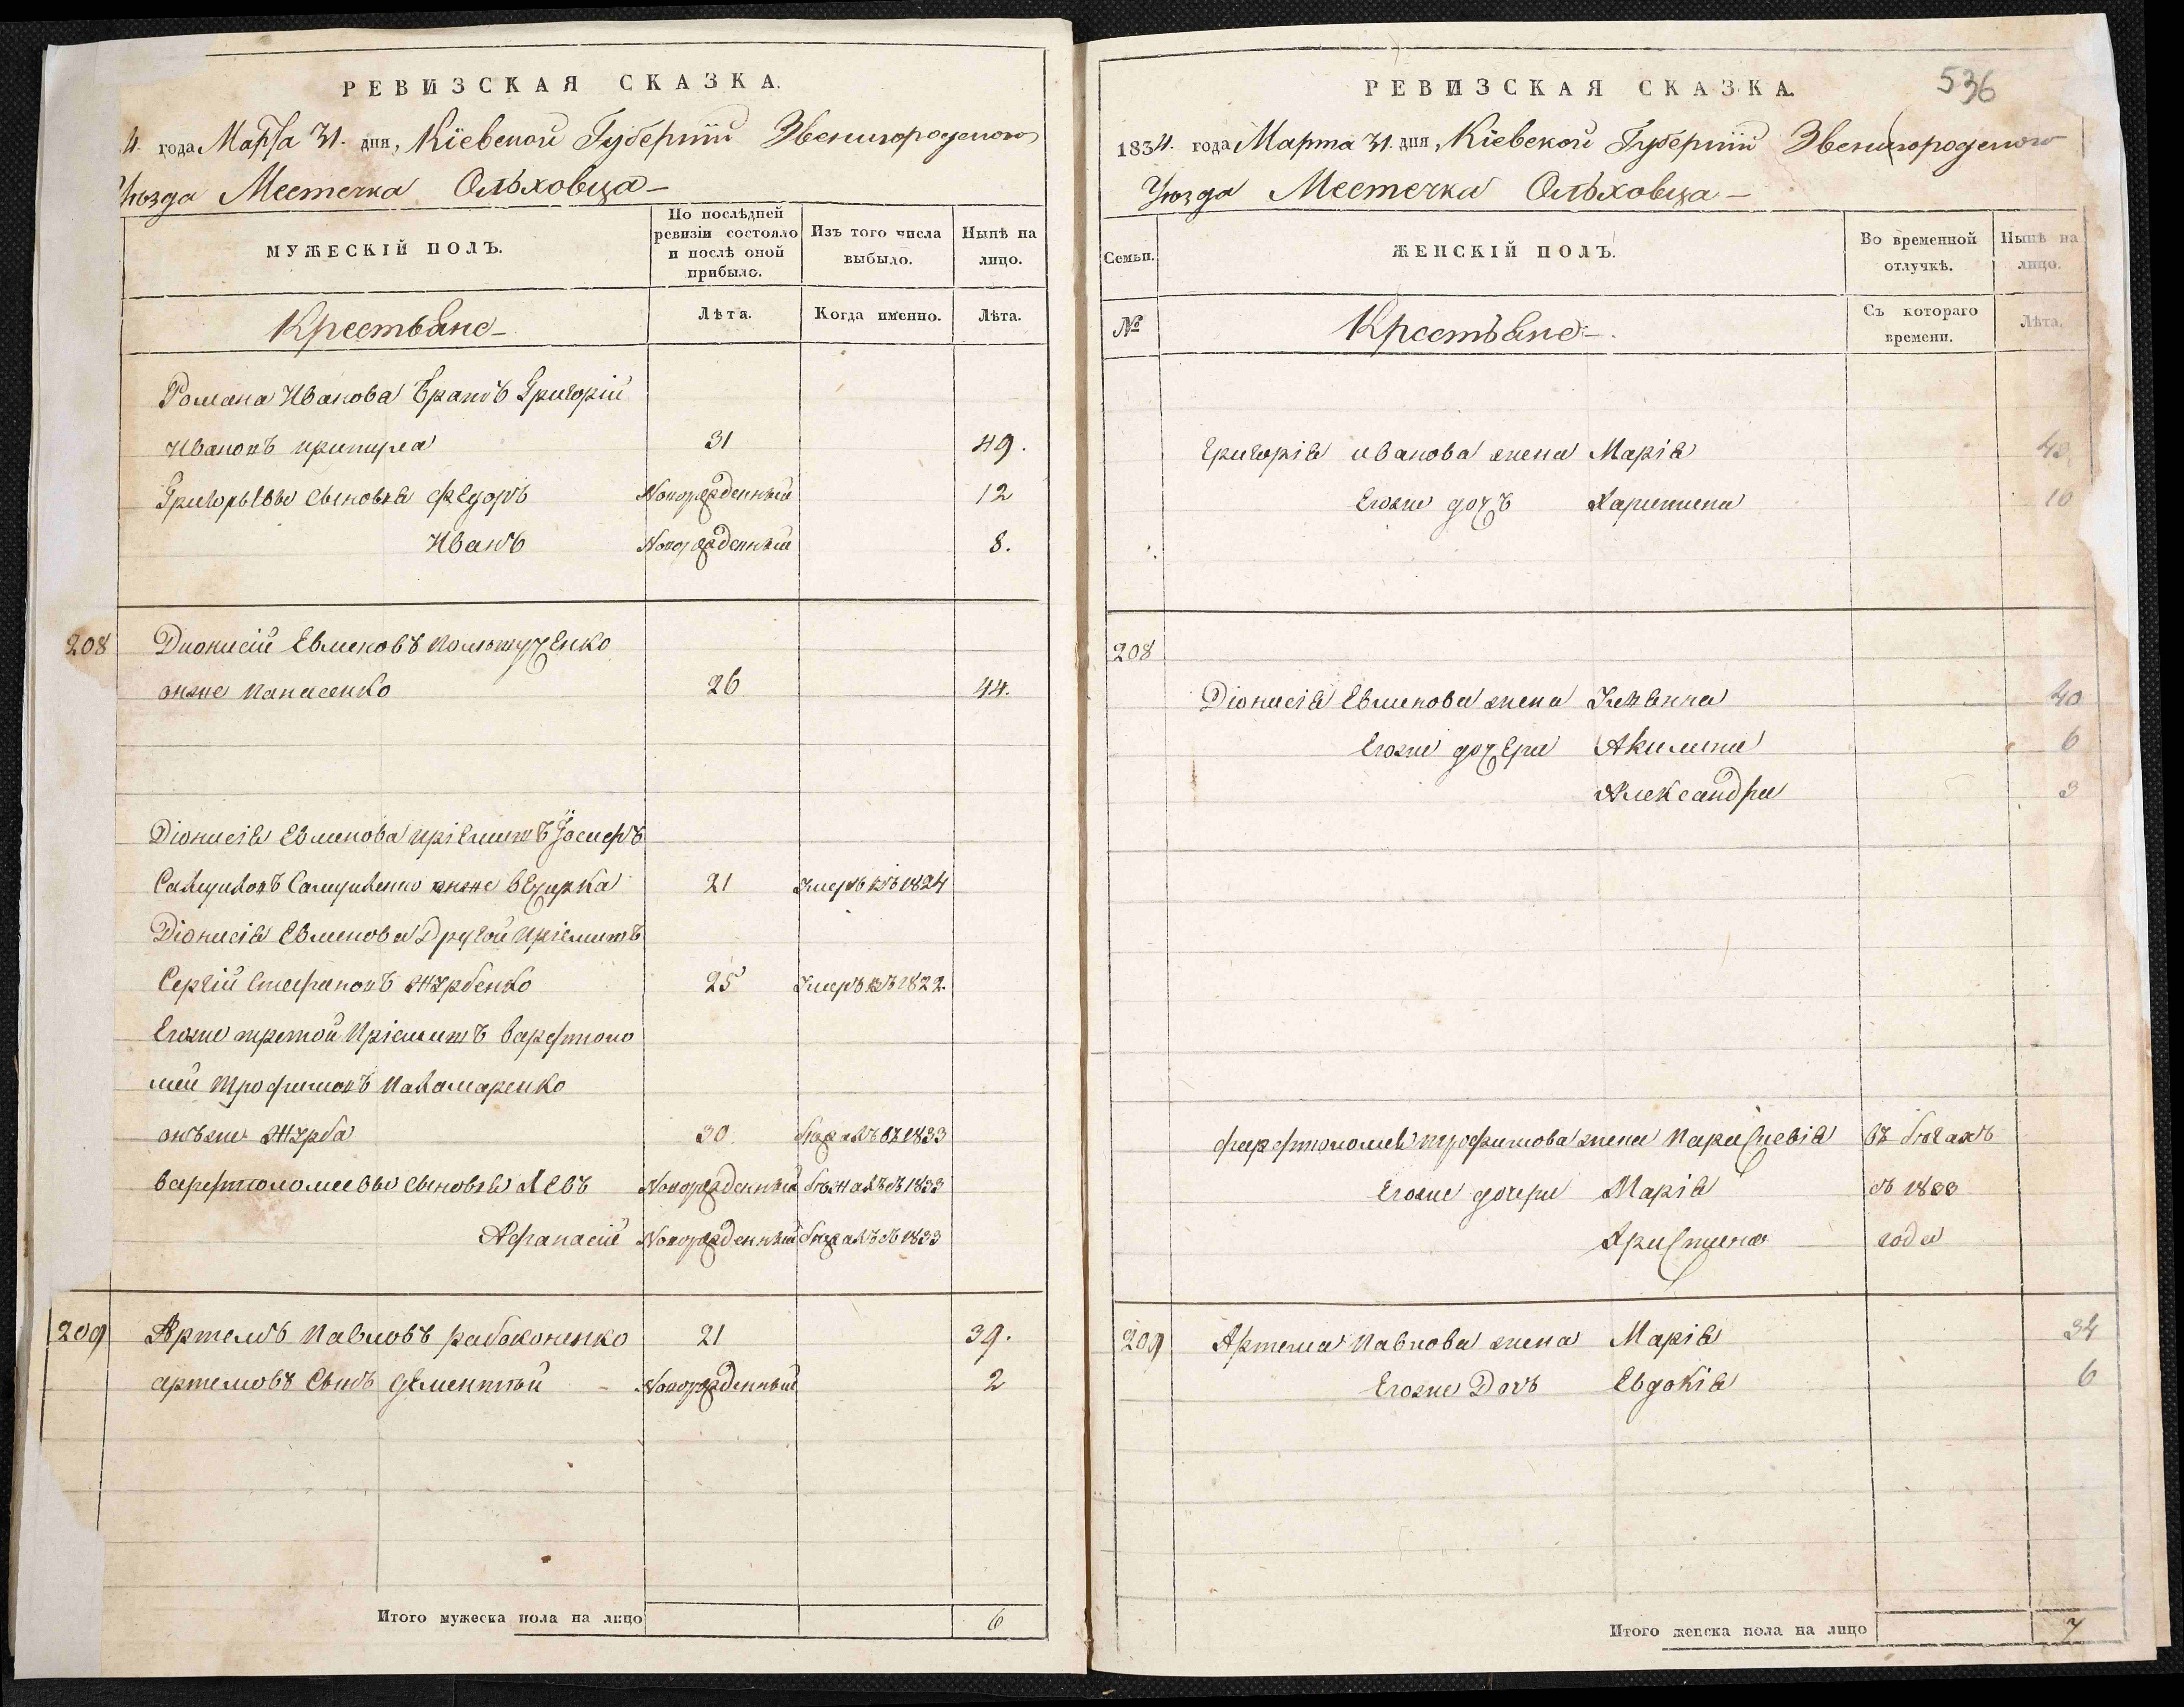 РЕВИЗСКАЯ СКАЗКА.
4. года Марта 31. дня, Кіевской Губерніи Звенигородского
Уѣзда Местечка Ольховца
МУЖЕСКІЙ ПОЛЪ.
По послѣдней ревизіи состояло и послѣ оной прибыло.
Изъ того числа выбыло.
Нынѣ на лицо.
Крестьяне
Лѣта.
Когда именно.
Лѣта.
Романа Иванова братъ Григорій
Ивановъ притула 31 49.
Григорьевы сыновья Федоръ Новорожденный 12
Иванъ Новорожденный 8.
208 Дионисій Евменовъ
онже Панасенко 26 44.
Діонисія Евменова пріемитъ Іосифъ
онже 21 Умеръ въ 1824
Діонисія Евменова Другой пріемитъ
Сергій Стефановъ Журбенко 25 Умеръ въ 1822.
Егоже третой Пріемитъ Варфтоло
мей Трофимовъ Паламаренко
онъже Журба 30. бежалъ въ 1833
Варфтоломеевы сыновья Левъ Новорожденный бежалъ въ 1833
Афанасій Новорожденный бежалъ въ 1833
209 Артемъ Павловъ рабоконенко 21 39.
артемовъ Сынъ Дементій Новорожденный 2
Итого мужеска пола на лицо 6
РЕВИЗСКАЯ СКАЗКА.
536
1834. года Марта 31. дня, Кіевской Губерніи Звенигородского
Уѣзда Местечка Ольховца
Семьи.
ЖЕНСКІЙ ПОЛЪ.
Во временной отлучкѣ.
Нынѣ на лицо.
№
Крестьяне
Съ котораго времени.
Лѣта.
Григорія иванова жена Марія
Егоже дочъ Харитина 10
208
Діонисія Евменова жена Уліянна 40
Егоже дочери Акилина 6
Александра 3
трофимова жена Парасkевія въ бегахъ
Егоже дочери Марія съ 1833
Христина года
209 Артема Павлова жена Марія 34
Егоже Дочъ Евдокія 6
Итого женска пола на лицо 7